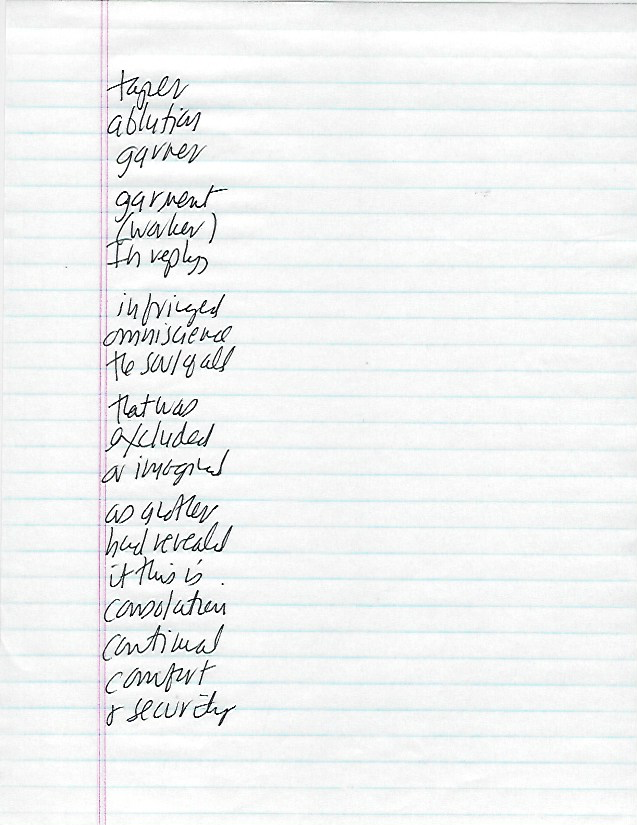 taper
ablution
garner
garment
(worker)
In reply
infringed
omniscience
the soul of all
that was
excluded
or imagined
as another
had revealed
it this is.
consolation
continual
comfort
& security